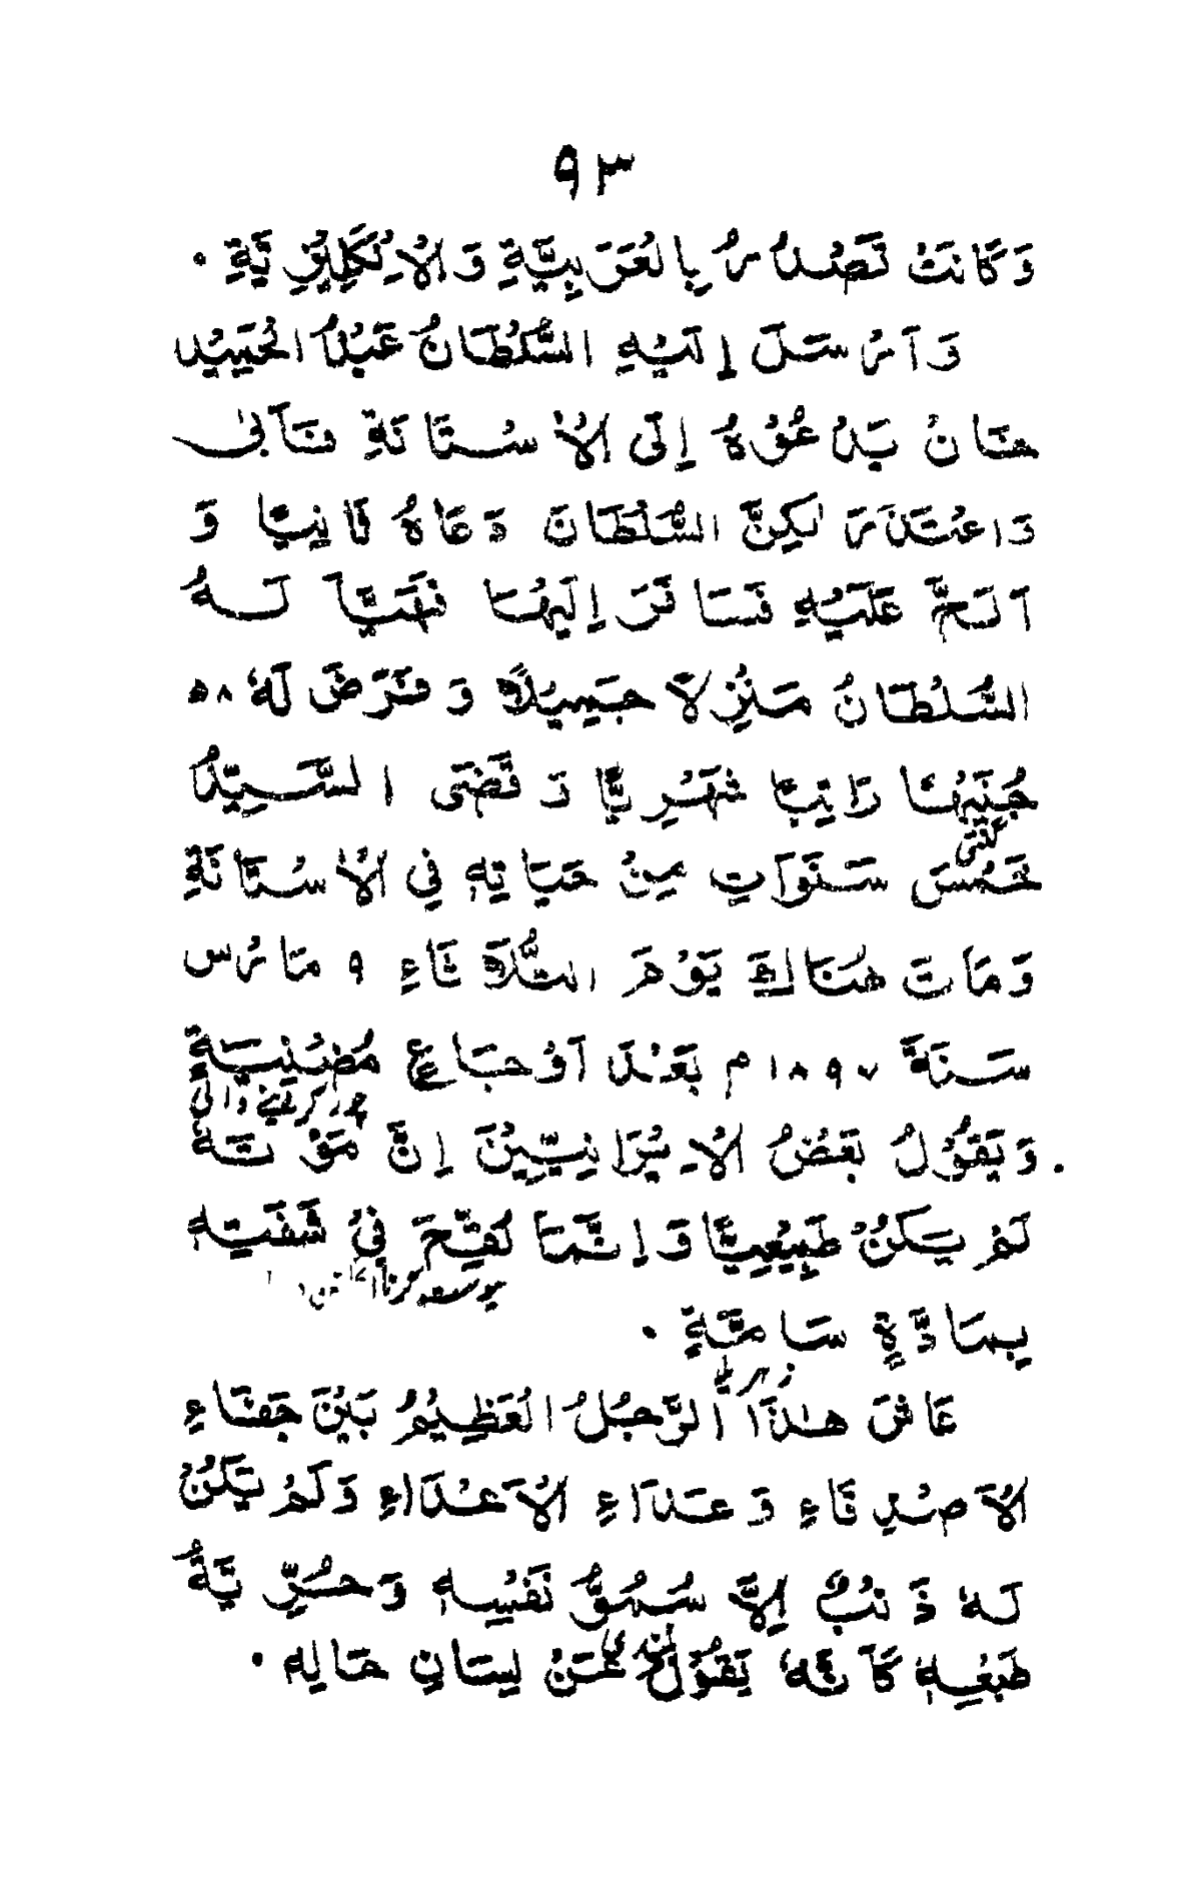 ٩٣
وَكَانَتْ تَصْدُرُ بِالْعَرَبِيَّةِ وَالْاِنْكَلِيْزِيَّةِ ۰
وَاَرْسَلَ اِلَيْهِ السُّلْطَانُ عَبْدُ الْحَمِيْدِ
خَانْ يَدْعُوْهُ اِلَى الْاُسْتَانَةِ فَاَبٰى
وَاعْتَذَرَ لٰكِنَّ السُّلْطَانَ دَعَاهُ ثَانِيًا وَ
اَلَحَّ عَلَيْهِ فَسَافَرَ اِلَيْهَا فَهَيَّاَ لَهُ
السُّلْطَانُ مَنْزِلًا جَمِيْلًا وَ فَرَضَ لَهٗ ٥٨
جُنَيْهًا رَاتِبًا شَهْرِيًّا وَ قَضَى السَّيِّدُ
خَمْسَ سَنَوَاتٍ مِنْ حَيَاتِهٖ فِي الْاُسْتَانَةِ
وَمَاتَ هُنَاكَ يَوْمَ الثُّلَاثَاءِ ٩ مَارْس
سَنَةَ ١٨٩٧ م بَعْدَ اَوْجَاعٍ مُضْنِيَةٍ
وَيَقُوْلُ بَعْضُ الْاِيْرَانِيِّيْنَ اِنَّ مَوْتَهٗ
لَمْ يَكُنْ طَبِيْعِيًّا وَاِنَّمَا لُقِّحَ فِيْ شَفَتِهٖ
بِمَادَّةٍ سَامَّةٍ ۰
عَاشَ هٰذَا الرَّجُلُ الْعَظِيْمُ بَيْنَ جَفَاءِ
الْاَصْدِقَاءِ وَ عَدَاءِ الْاَعْدَاءِ وَلَمْ يَكُنْ
لَهٗ ذَنْبٌ اِلَّا سُمُوُّ نَفْسِهٖ وَ حُرِّيَّةُ
طَبْعِهٖ كَاَنَّهٗ يَقُوْلُ عَنْ لِسَانِ حَالِهٖ ۰